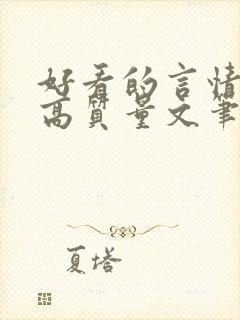 好看的言情
高质量文笔
夏塔